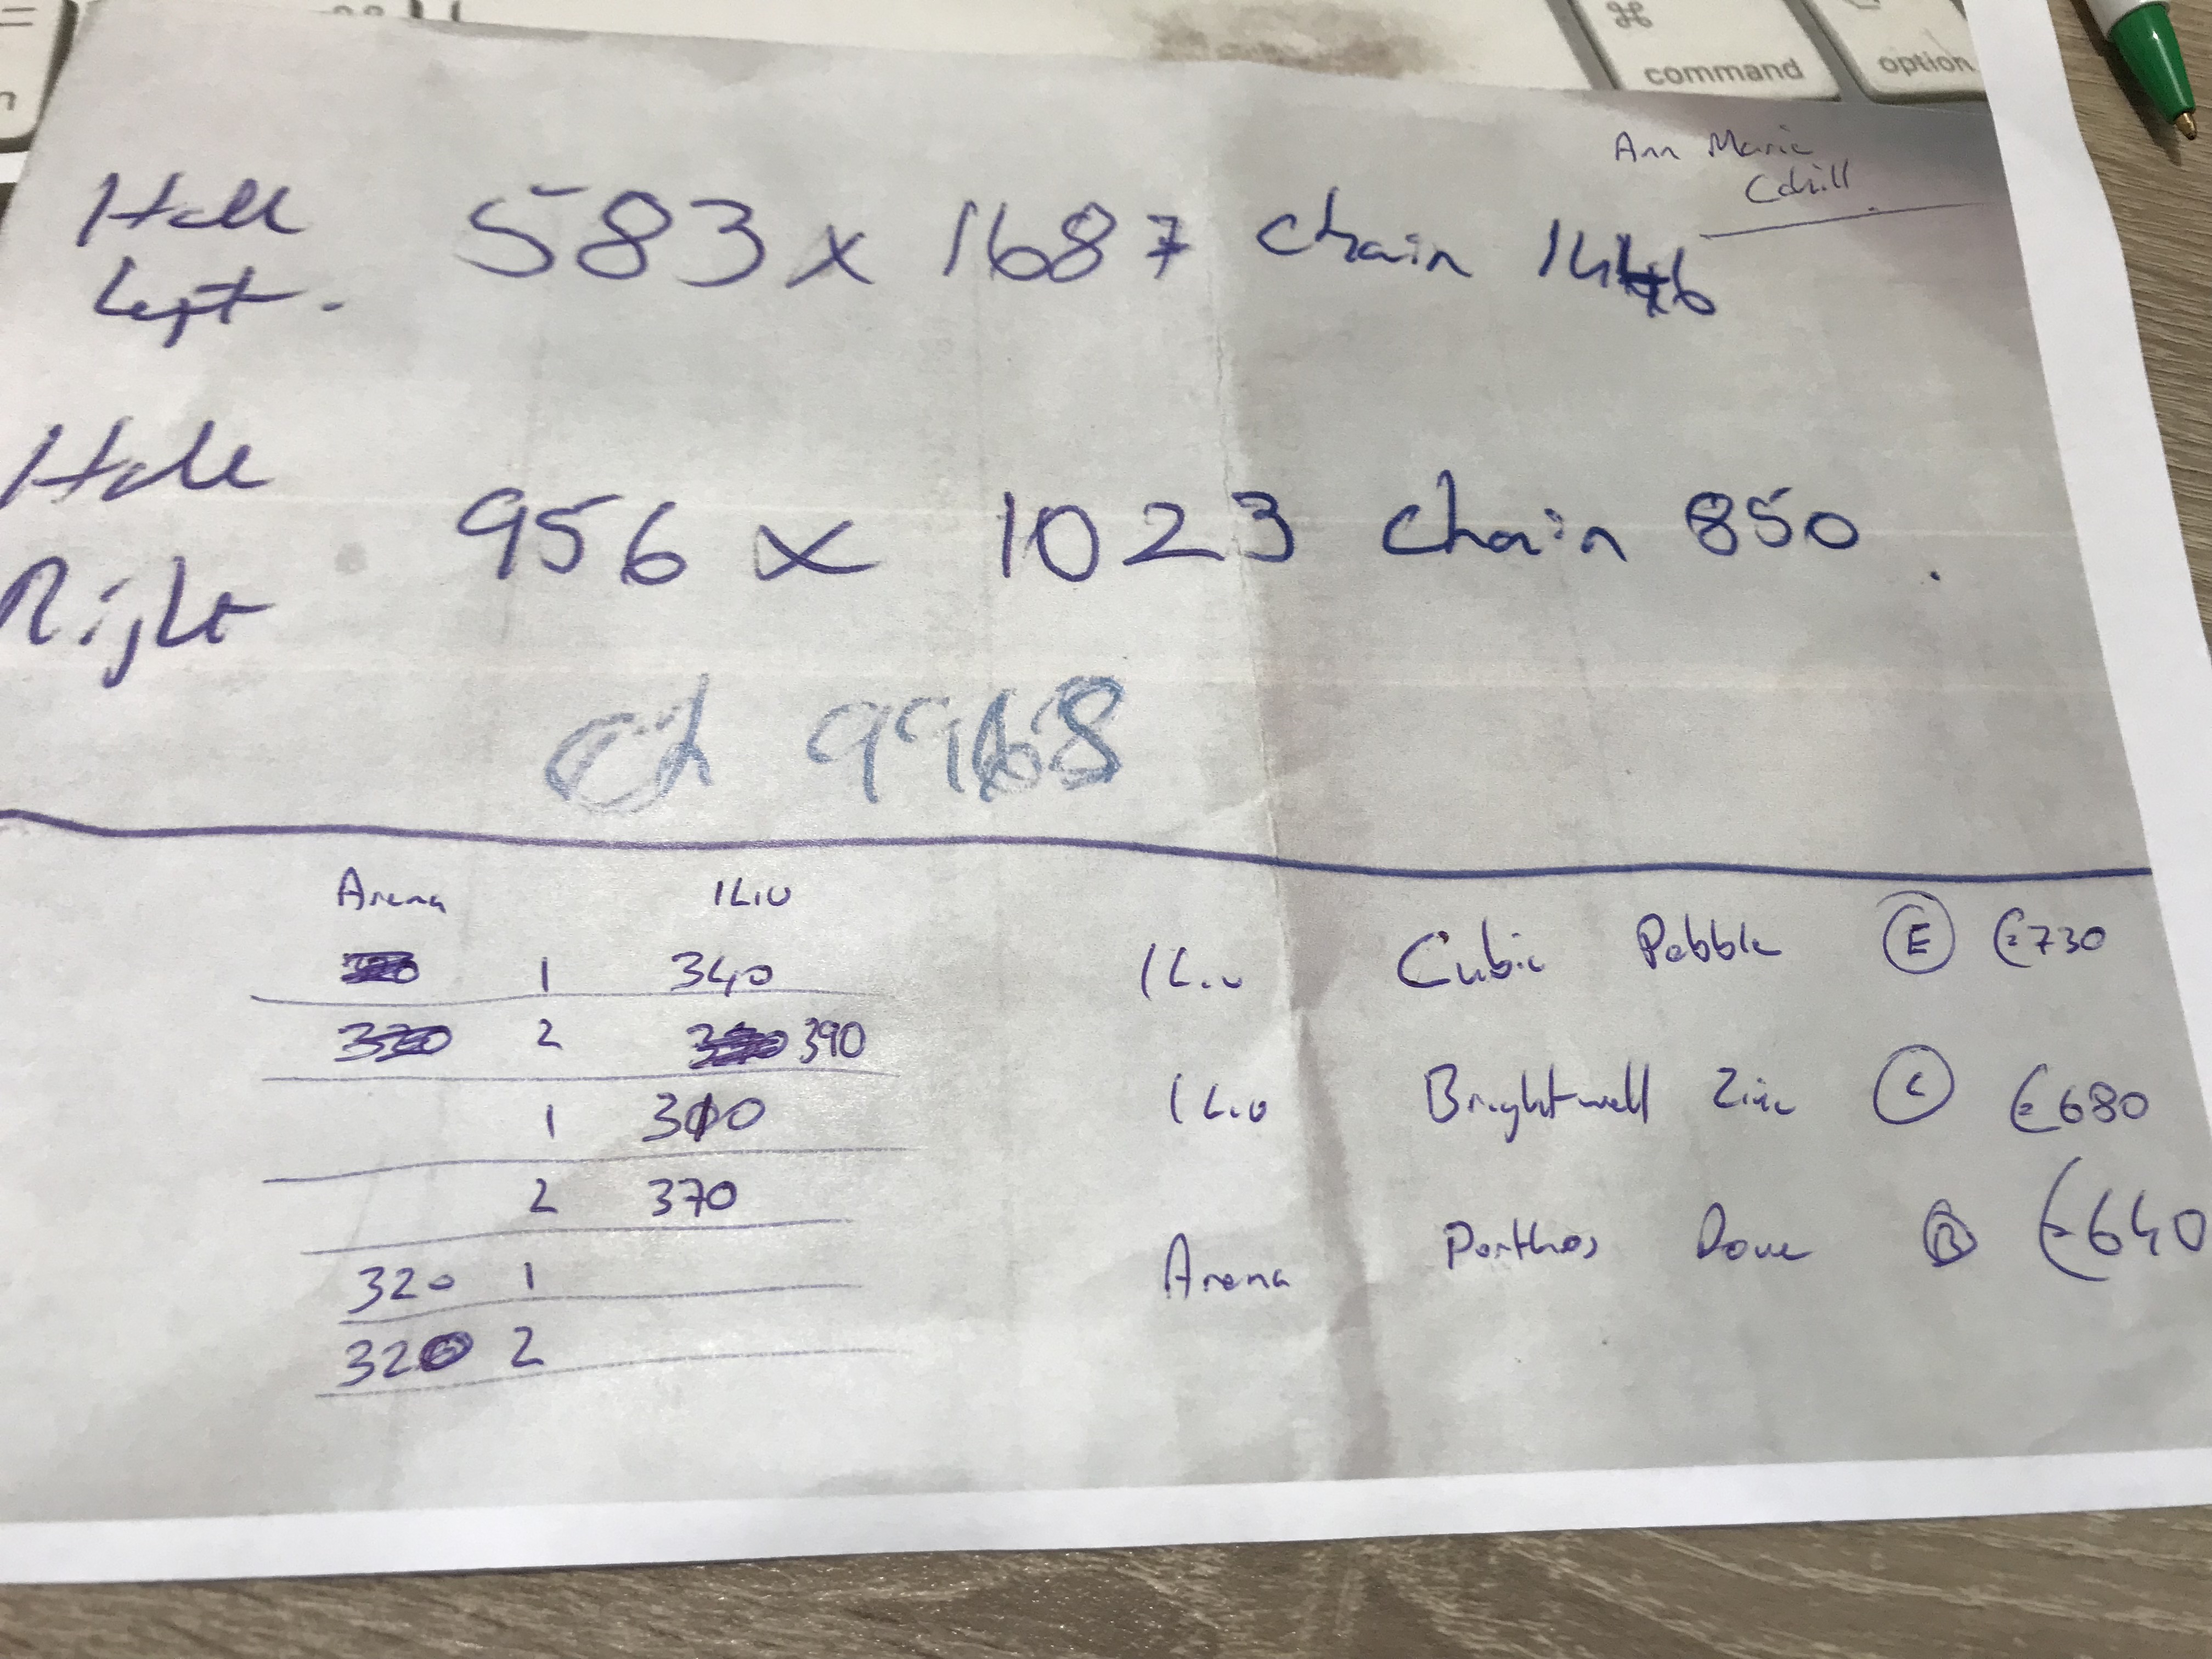 command
option
Ann Marie
Cahill
Hall
Left. 583 x 1687 chain 1446
Hall
Right 956 x 1023 chain 850.
Ch 9968
Arena ILIV
1 340
2 390
1 310
2 370
320 1
320 2
ILIV Cubic Pebble E €730
ILIV Brightwell Zinc C €680
Arena Porthos Dove B €640